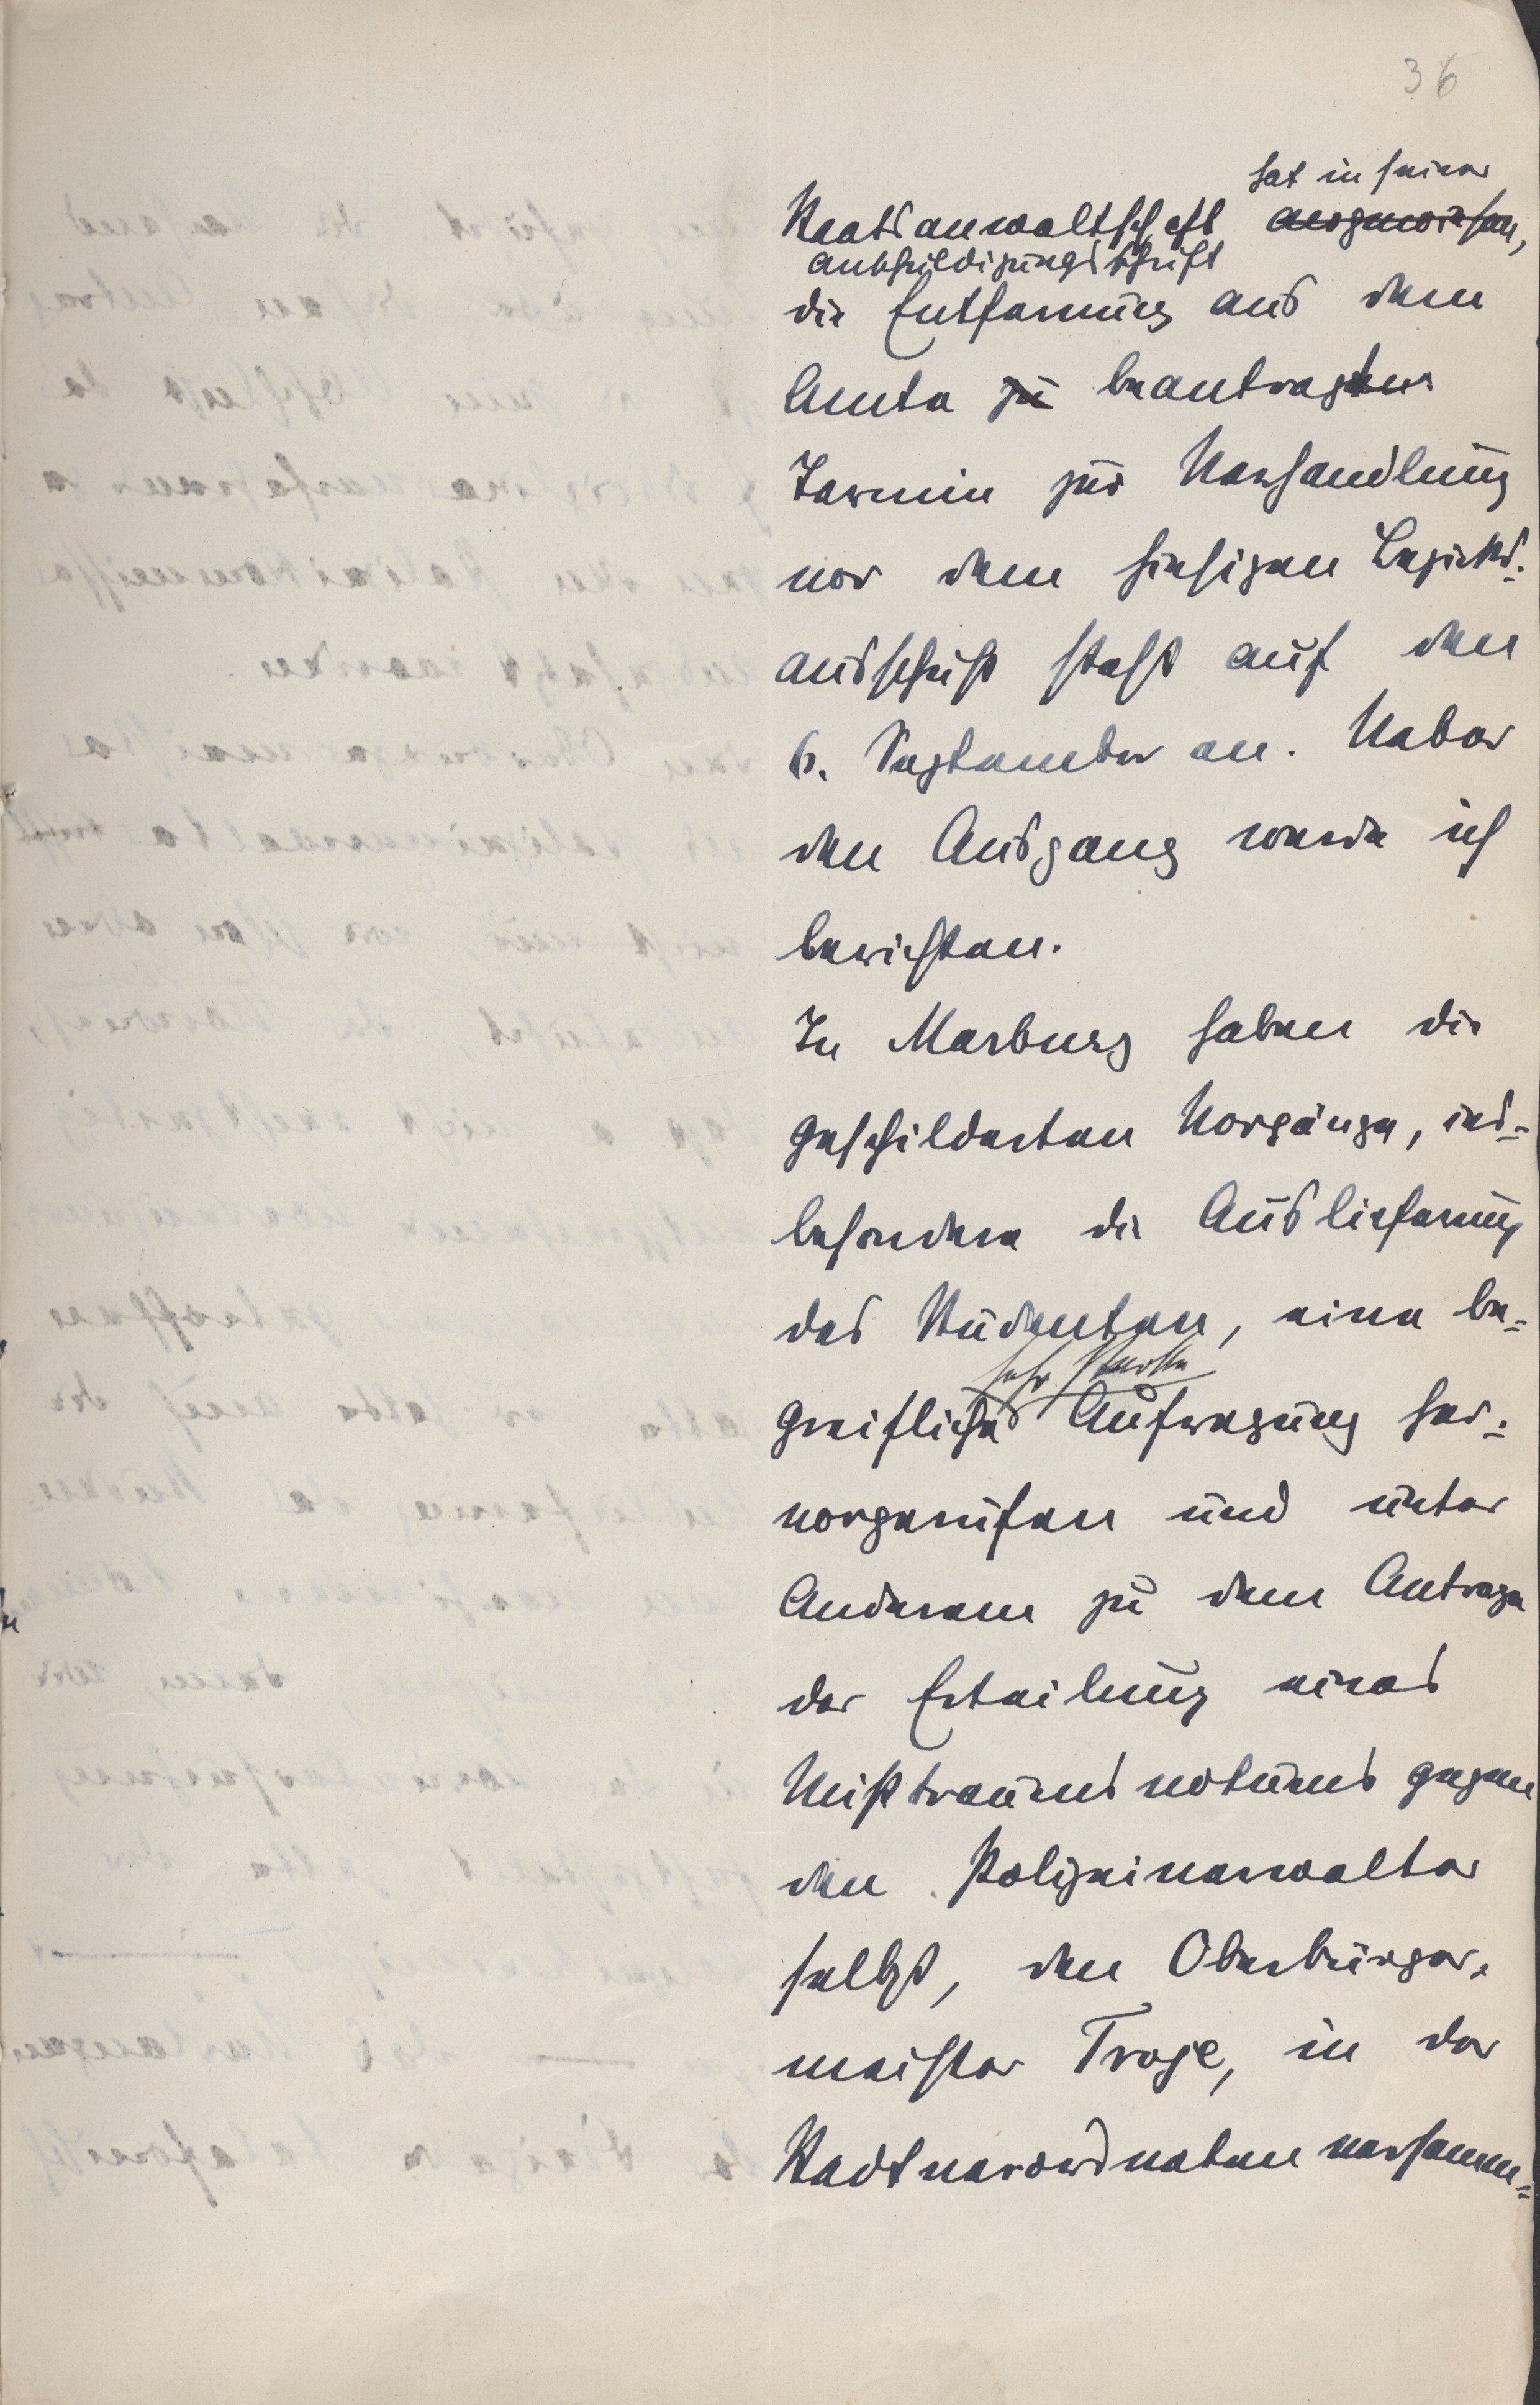 36
hat in seiner
Staatsanwaltschaft angewiesen,
Anschuldigungsschrift
die Entfernung aus dem
Amte zu beantragten
Termin zur Verhandlung
vor dem hiesigen Bezirks-
ausschuß steht auf den
6. September an. Ueber
den Ausgang werde ich
berichten.
In Marburg haben die
geschilderten Vorgänge, ins-
besondere die Auslieferung
des Studenten, eine be-
sehr starke
greifliche Aufregung her-
vorgerufen und unter
Anderem zu dem Antrage
der Erteilung eines
Mißtrauensvotums gegen
den Polizeiverwalter
selbst, den Oberbürger-
meister Troje, in der
Stadtverordnetenversamm-